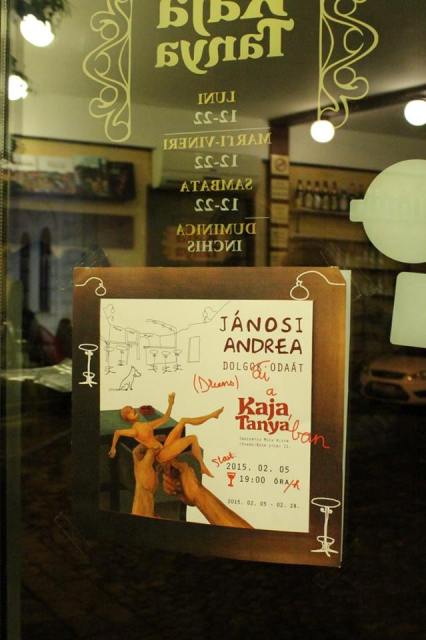 Kaja
Tanya
LUNI
12-22
MARTI-VINERI
12-22
SAMBATA
12-22
DUMINICA
INCHIS
JÁNOSI
ANDREA
DOLGOS ODAÁT
ái
(Dreams)
a
Kaja
Tanya ban
Start:
2015. 02. 05
19:00 ÓRA
2015. 02. 05 - 02. 28.